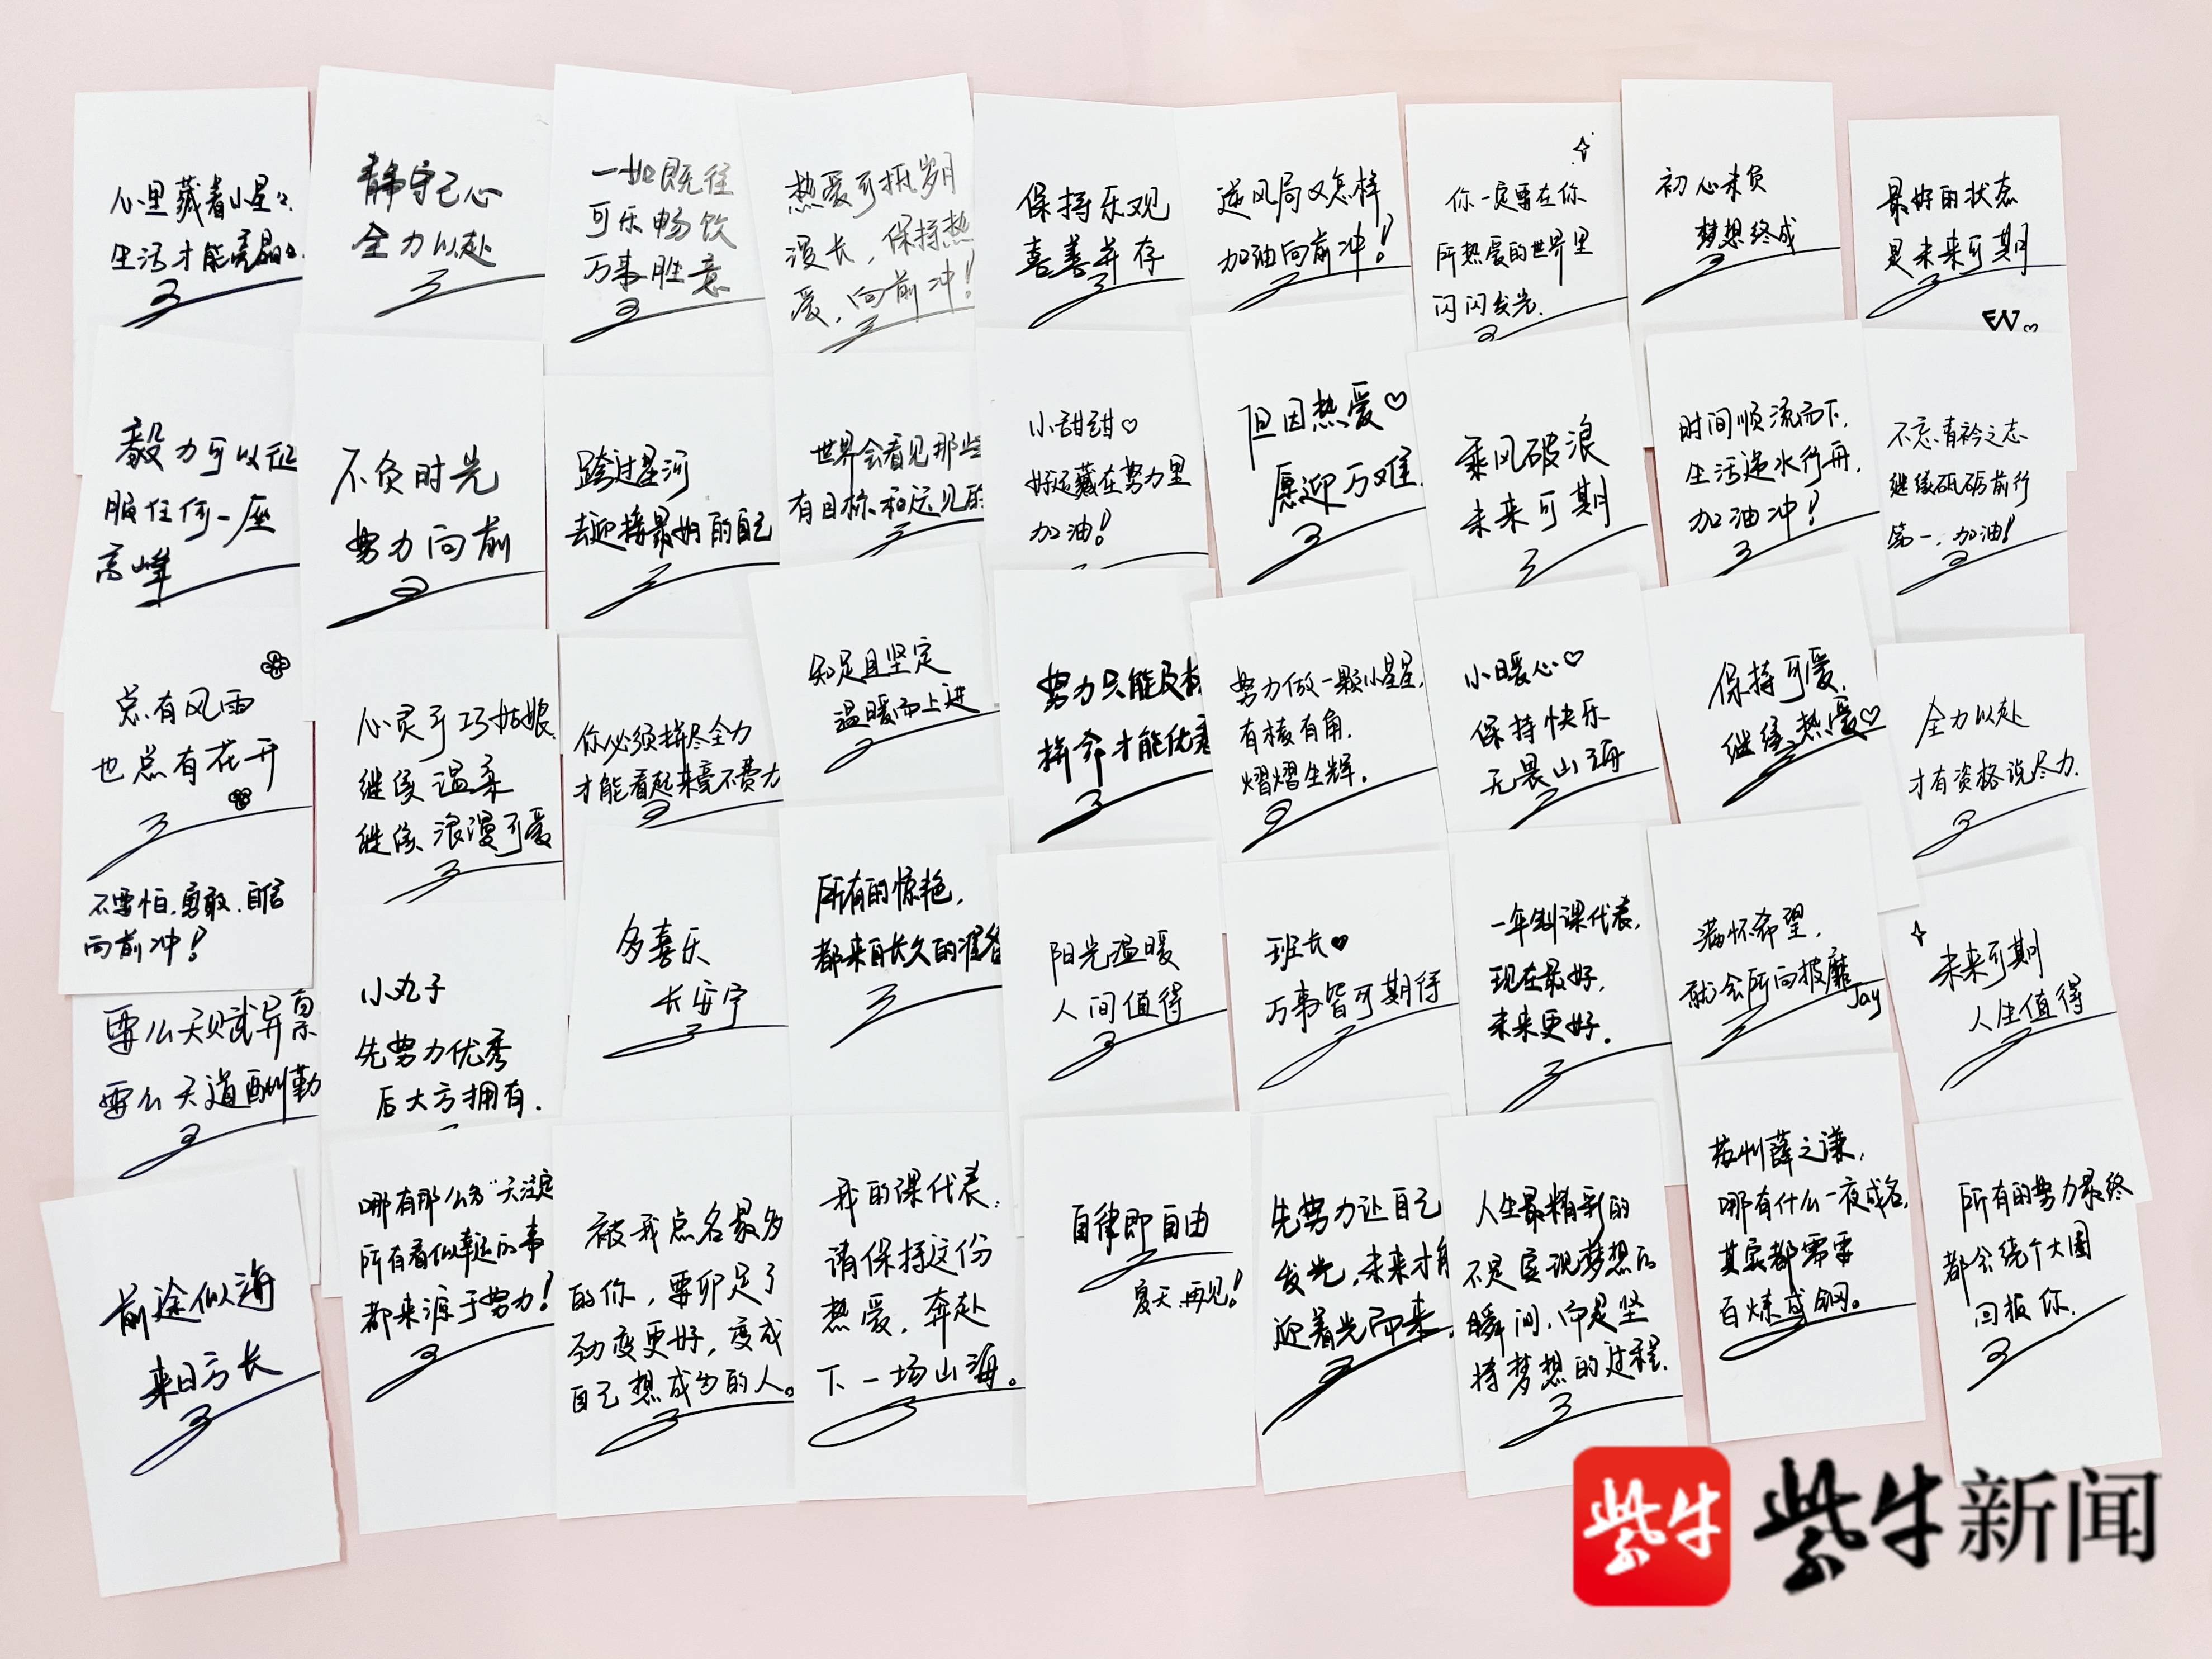 心里藏着小星星
生活才能亮晶晶
静守己心
全力以赴
一如既往
可乐畅饮
万事胜意
热爱可抵岁月
漫长，保持热
爱，向前冲！
保持乐观
喜善并存
逆风局又怎样
加油向前冲！
你一定要在你
所热爱的世界里
闪闪发光.
初心未负
梦想终成
最好的状态
是未来可期
毅力可以征
服任何一座
高峰
不负时光
努力向前
跨过星河
去迎接最好的自己
世界会看见那些
有目标和远见的
小甜甜♡
好运藏在努力里
加油！
但因热爱♡
愿迎万难.
乘风破浪
未来可期
时间顺流而下，
生活逆水行舟，
加油冲！
不忘青衿之志
继续砥砺前行
第一，加油！
总有风雨
也总有花开
心灵手巧姑娘，
继续温柔
继续浪漫可爱
你必须拼尽全力
才能看起来毫不费力
知足且坚定
温暖而上进
努力只能及格
拼命才能优秀
努力做一颗小星星，
有棱有角，
熠熠生辉.
小暖心♡
保持快乐
无畏山海
保持可爱，
继续热爱♡
全力以赴
才有资格说尽力.
不要怕，勇敢，自信
向前冲！
要么天赋异禀
要么天道酬勤
小丸子
先努力优秀
后大方拥有.
多喜乐
长安宁
所有的惊艳，
都来自长久的准备
阳光温暖
人间值得
班长♥
万事皆可期待
一年制课代表，
现在最好，
未来更好.
满怀希望，
就会所向披靡
Jay
未来可期
人生值得
前途似海
来日方长
哪有那么多“天注定
所有看似幸运的事
都来源于努力！
被我点名最多
的你，要卯足了
劲变更好，变成
自己想成为的人。
我的课代表：
请保持这份
热爱，奔赴
下一场山海。
自律即自由
夏天，再见！
先努力让自己
发光，未来才能
迎着光而来.
人生最精彩的
不是实现梦想的
瞬间，而是坚
持梦想的过程.
苏州薛之谦，
哪有什么一夜成名，
其实都需要
百炼成钢。
所有的努力最终
都会绕个大圈
回报你.
紫牛
紫牛新闻